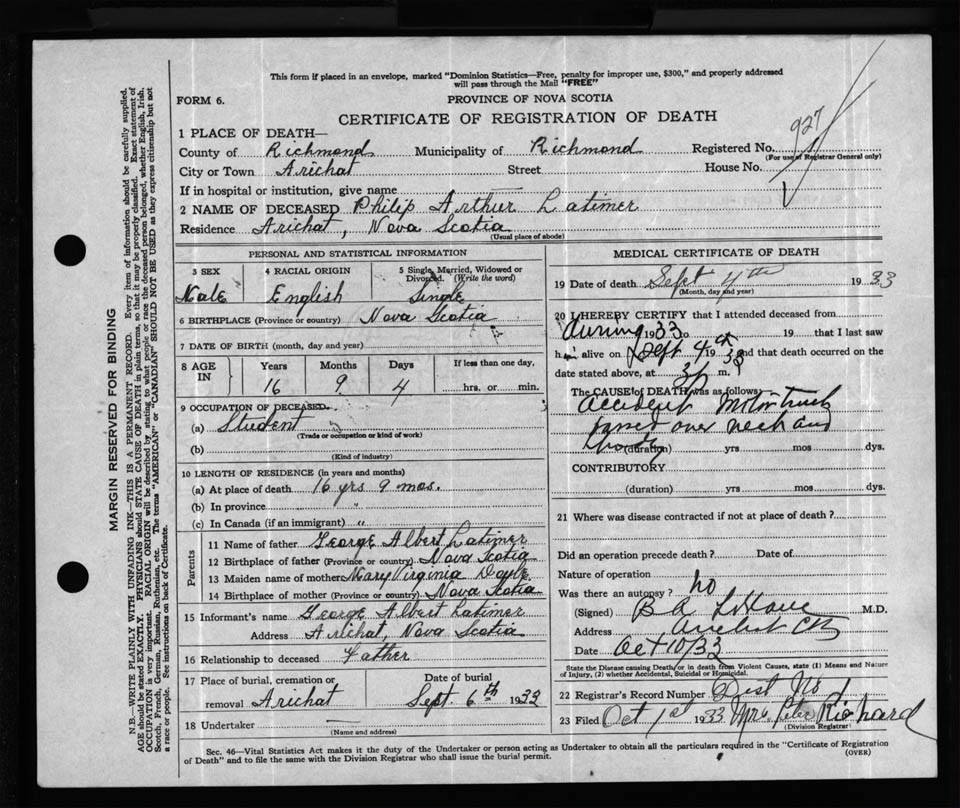 This form if placed in an envelope, marked "Dominion Statistics—Free, penalty for improper use, $300," and properly addressed
will pass through the Mail "FREE"
FORM 6.
PROVINCE OF NOVA SCOTIA
CERTIFICATE OF REGISTRATION OF DEATH
927
1 PLACE OF DEATH—
County of Richmond Municipality of Richmond Registered No.
(For use of Registrar General only)
City or Town Arichat Street House No.
If in hospital or institution, give name
2 NAME OF DECEASED Philip Arthur Latimer
Residence Arichat, Nova Scotia
(Usual place of abode)
PERSONAL AND STATISTICAL INFORMATION
3 SEX 4 RACIAL ORIGIN 5 Single, Married, Widowed or
Divorced. (Write the word)
Male English Single
6 BIRTHPLACE (Province or country) Nova Scotia
7 DATE OF BIRTH (month, day and year)
8 AGE IN Years Months Days If less than one day,
16 9 4 hrs. or min.
9 OCCUPATION OF DECEASED
(a) Student
(Trade or occupation or kind of work)
(b)
(Kind of industry)
10 LENGTH OF RESIDENCE (in years and months)
(a) At place of death 16 yrs 9 mos.
(b) In province "
(c) In Canada (if an immigrant) "
Parents
11 Name of father George Albert Latimer
12 Birthplace of father (Province or country) Nova Scotia
13 Maiden name of mother Mary Virginia Doyle
14 Birthplace of mother (Province or country) Nova Scotia
15 Informant's name George Albert Latimer
Address Arichat, Nova Scotia
16 Relationship to deceased Father
17 Place of burial, cremation or Date of burial
removal Arichat Sept. 6th 1933
18 Undertaker —
(Name and address)
MEDICAL CERTIFICATE OF DEATH
19 Date of death Sept 4th 1933
(Month, day and year)
20 I HEREBY CERTIFY that I attended deceased from
during 1933 to 19 that I last saw
h alive on Sept 4th 1933 and that death occurred on the
date stated above, at 3 p m.
The CAUSE of DEATH was as follows:
Accident Motor truck
passed over neck and
(duration) yrs mos dys.
CONTRIBUTORY
(duration) yrs mos dys.
21 Where was disease contracted if not at place of death?
Did an operation precede death? Date of
Nature of operation
Was there an autopsy? no
(Signed) B A M.D.
Address Arichat CB
Date Oct 10/33
State the Disease causing Death, or in death from Violent Causes, state (1) Means and Nature
of Injury, (2) whether Accidental, Suicidal or Homicidal.
22 Registrar's Record Number Dist No 1
23 Filed Oct 1st 1933 Mrs Peter Richard
(Division Registrar)
Sec. 46—Vital Statistics Act makes it the duty of the Undertaker or person acting as Undertaker to obtain all the particulars required in the "Certificate of Registration
of Death" and to file the same with the Division Registrar who shall issue the burial permit.
(OVER)
MARGIN RESERVED FOR BINDING
N.B.—WRITE PLAINLY WITH UNFADING INK—THIS IS A PERMANENT RECORD. Every item of information should be carefully supplied.
AGE should be stated EXACTLY. PHYSICIANS should STATE CAUSE OF DEATH in plain terms, so that it may be properly classified. Exact statement of
OCCUPATION is very important. RACIAL ORIGIN will be described by stating to what people or race the deceased person belonged, whether English, Irish,
Scotch, French, German, Russian, Ruthenian, etc. The terms "AMERICAN" or "CANADIAN" SHOULD NOT BE USED as they express citizenship but not
a race or people. See instructions on back of Certificate.